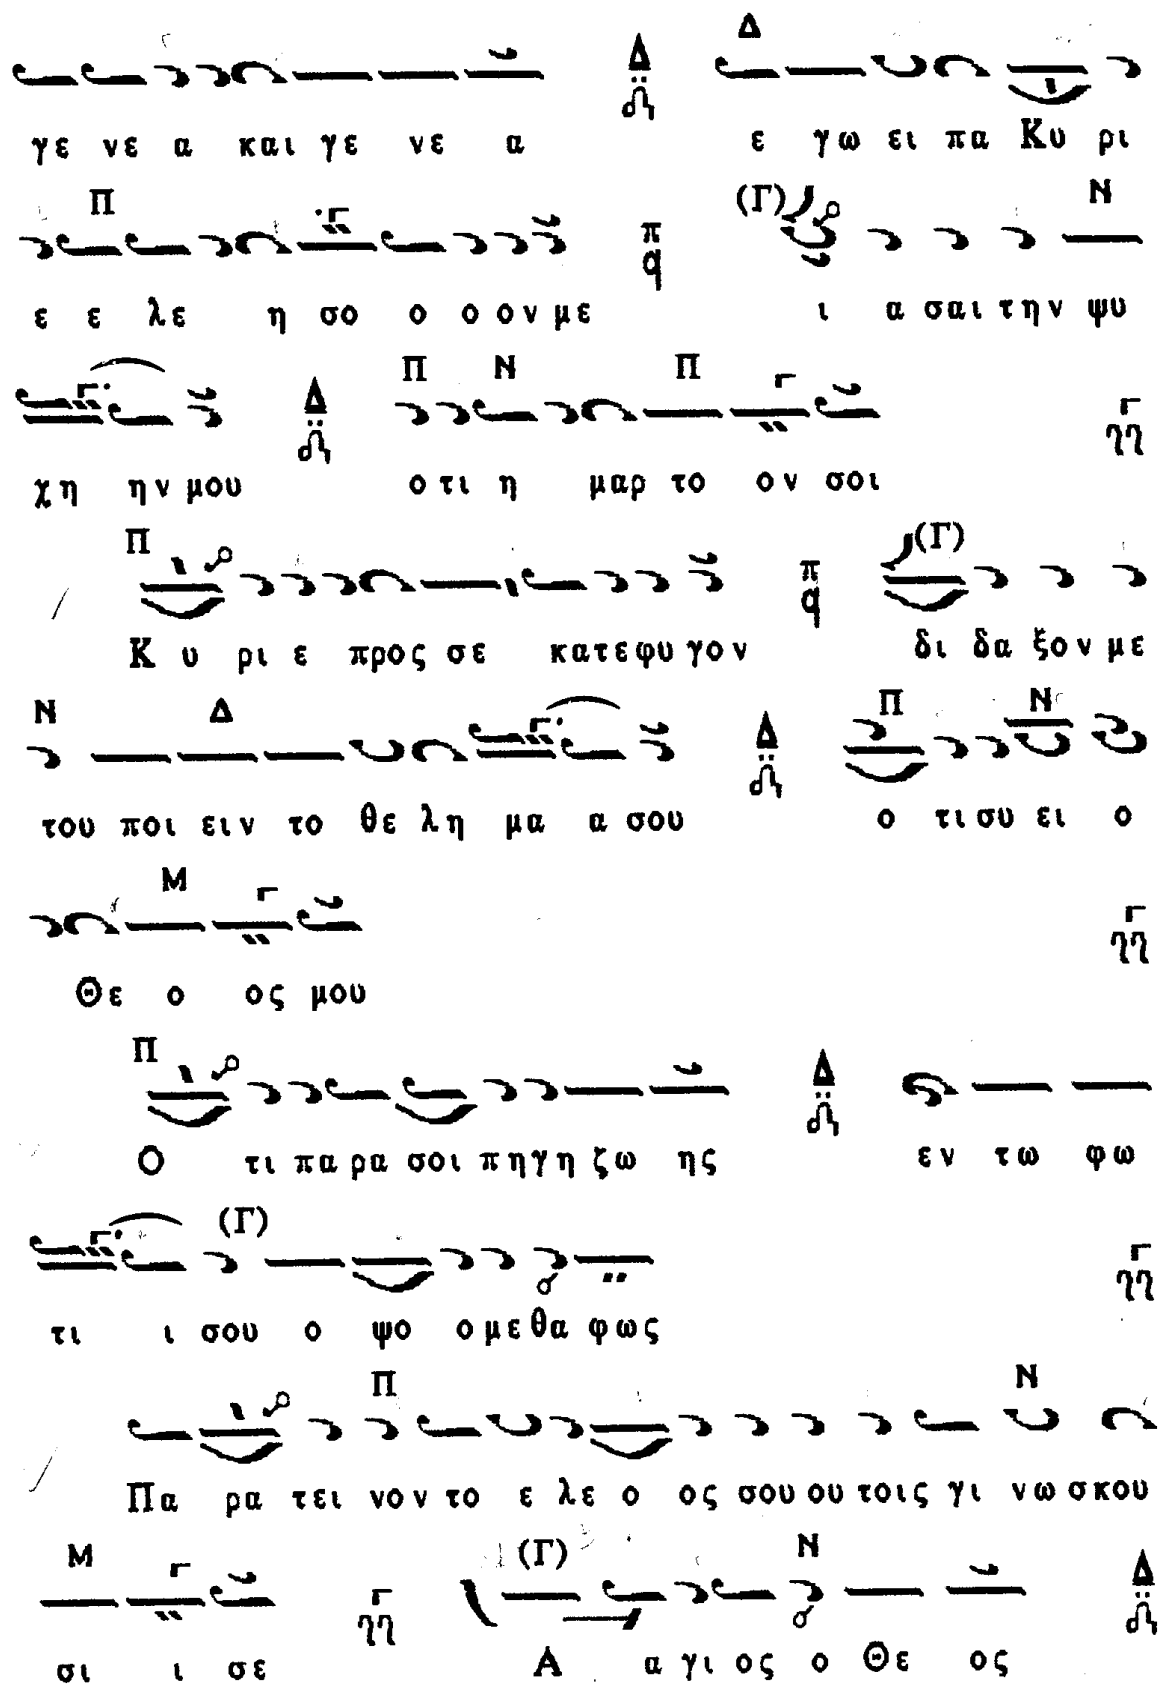 Δ Δ
γε νε α και γε νε α ε γω ει πα Κυ ρι
Π π q (Γ) Ν
ε ε λε η σο ο ο ον με ι α σαι την ψυ
Δ Π Ν Π
χη ην μου ο τι η μαρ το ον σοι
Π π q (Γ)
Κ υ ρι ε προς σε κατεφυγον δι δα ξον με
Ν Δ Δ Π Ν
του ποι ειν το θε λη μα α σου ο τι συ ει ο
Μ
Θε ο ος μου
Π Δ
Ο τι παρα σοι πηγη ζω ης εν τω φω
(Γ)
τι ι σου ο ψο ομεθα φως
Π Ν
Πα ρα τει νον το ε λε ο ος σου ου τοις γι νω σκου
Μ (Γ) Ν Δ
σι ι σε Α α γι ος ο Θε ος